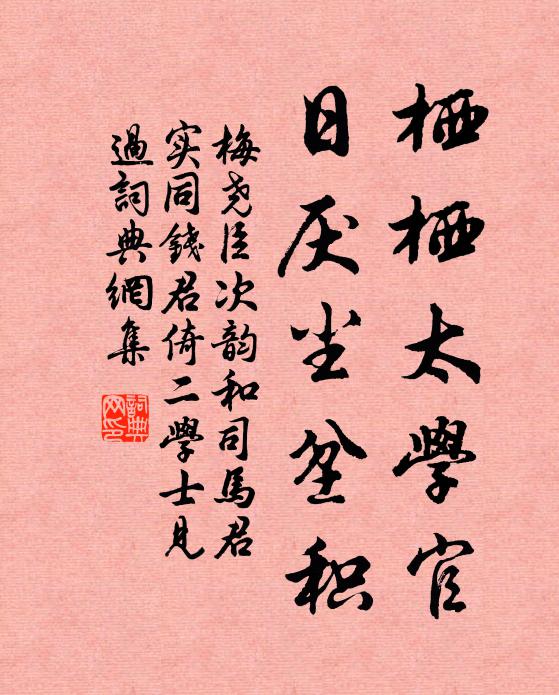 栖栖太學官
日厌尘坌积
梅尧臣次韵和司馬君
实同錢君倚二學士見
過詞典網集
詞典
网印